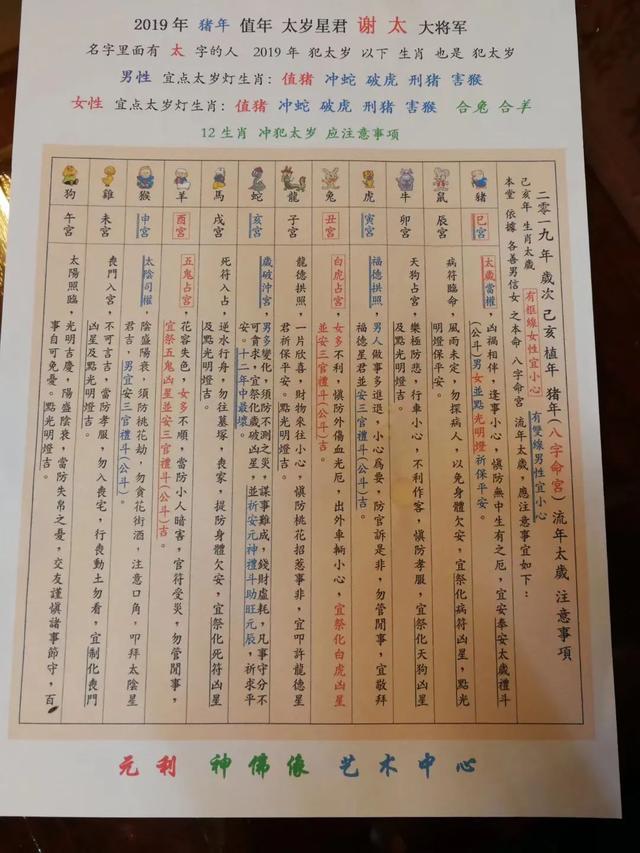 2019年 猪年 值年 太岁星君 谢太 大将军
名字里面有 太 字的人 2019 年 犯太岁 以下 生肖 也是 犯太岁
男性 宜点太岁灯生肖：值猪 冲蛇 破虎 刑猪 害猴
女性 宜点太岁灯生肖：值猪 冲蛇 破虎 刑猪 害猴 合兔 合羊
12 生肖 冲犯太岁 应注意事项
二零一九年歲次 己亥 植年 猪年(八字命宮) 流年太歲 注意事項
己亥年 生肖太歲 有框線女性宜小心 有雙線男性宜小心
本堂 依據 各善男信女之本命 八字命宮 流年太歲，應注意事宜如下：
豬
巳宮
太歲當權，凶禍相伴，逢事小心，慎防無中生有之厄，宜安奉安太歲禮斗
(公斗)男女並點光明燈祈保平安。
鼠
辰宮
病符臨命，風雨未定，勿探病人，以免身體欠安，宜祭化病符凶星，點光
明燈保平安。
牛
卯宮
天狗占宮，樂極防悲，行車小心，不利作客，慎防孝服，宜祭化天狗凶星
及點光明燈吉。
虎
寅宮
福德拱照，男人做事多進退，小心為要，防官訴是非，勿管閒事，宜敬拜
福德星君並安三官禮斗(公斗)吉。
兔
丑宮
白虎占宮，女多不利，慎防外傷血光厄，出外車輛小心，宜祭化白虎凶星
並安三官禮斗(公斗)吉。
龍
子宮
龍德拱照，一片欣喜，財物來往小心，慎防桃花招惹事非，宜叩許龍德星
君祈保平安。
蛇
亥宮
歲破沖宮，男多變化，須防不測之災，謀事難成，錢財虛耗，凡事守分不
可貪求，宜祭化歲破凶星，並祈安元神禮斗助旺元辰，祈求平
安。十二年中最壞。
馬
戌宮
死符入占，逆水行舟，勿往墓塚，喪家，提防身體欠安，宜祭化死符凶星
及點光明燈吉。
羊
酉宮
五鬼占宮，花容失色，女多不順，當防小人暗害，官符受災，勿管閒事，
宜祭五鬼凶星並安三官禮斗(公斗)吉。
猴
申宮
太陰司權，陰盛陽衰，須防桃花劫，勿貪花街酒，注意口角，叩拜太陰星
君吉，男宜安三官禮斗(公斗)。
雞
未宮
喪門入宮，不可言吉，當防孝服，勿入喪宅，行喪動土勿看，宜制化喪門
凶星及點光明燈吉。
狗
午宮
太陽照臨，光明吉慶，陽盛陰衰，當防失帛之憂，交友謹慎諸事節守，百
事自可免憂。點光明燈吉。
元利 神佛像 艺术中心